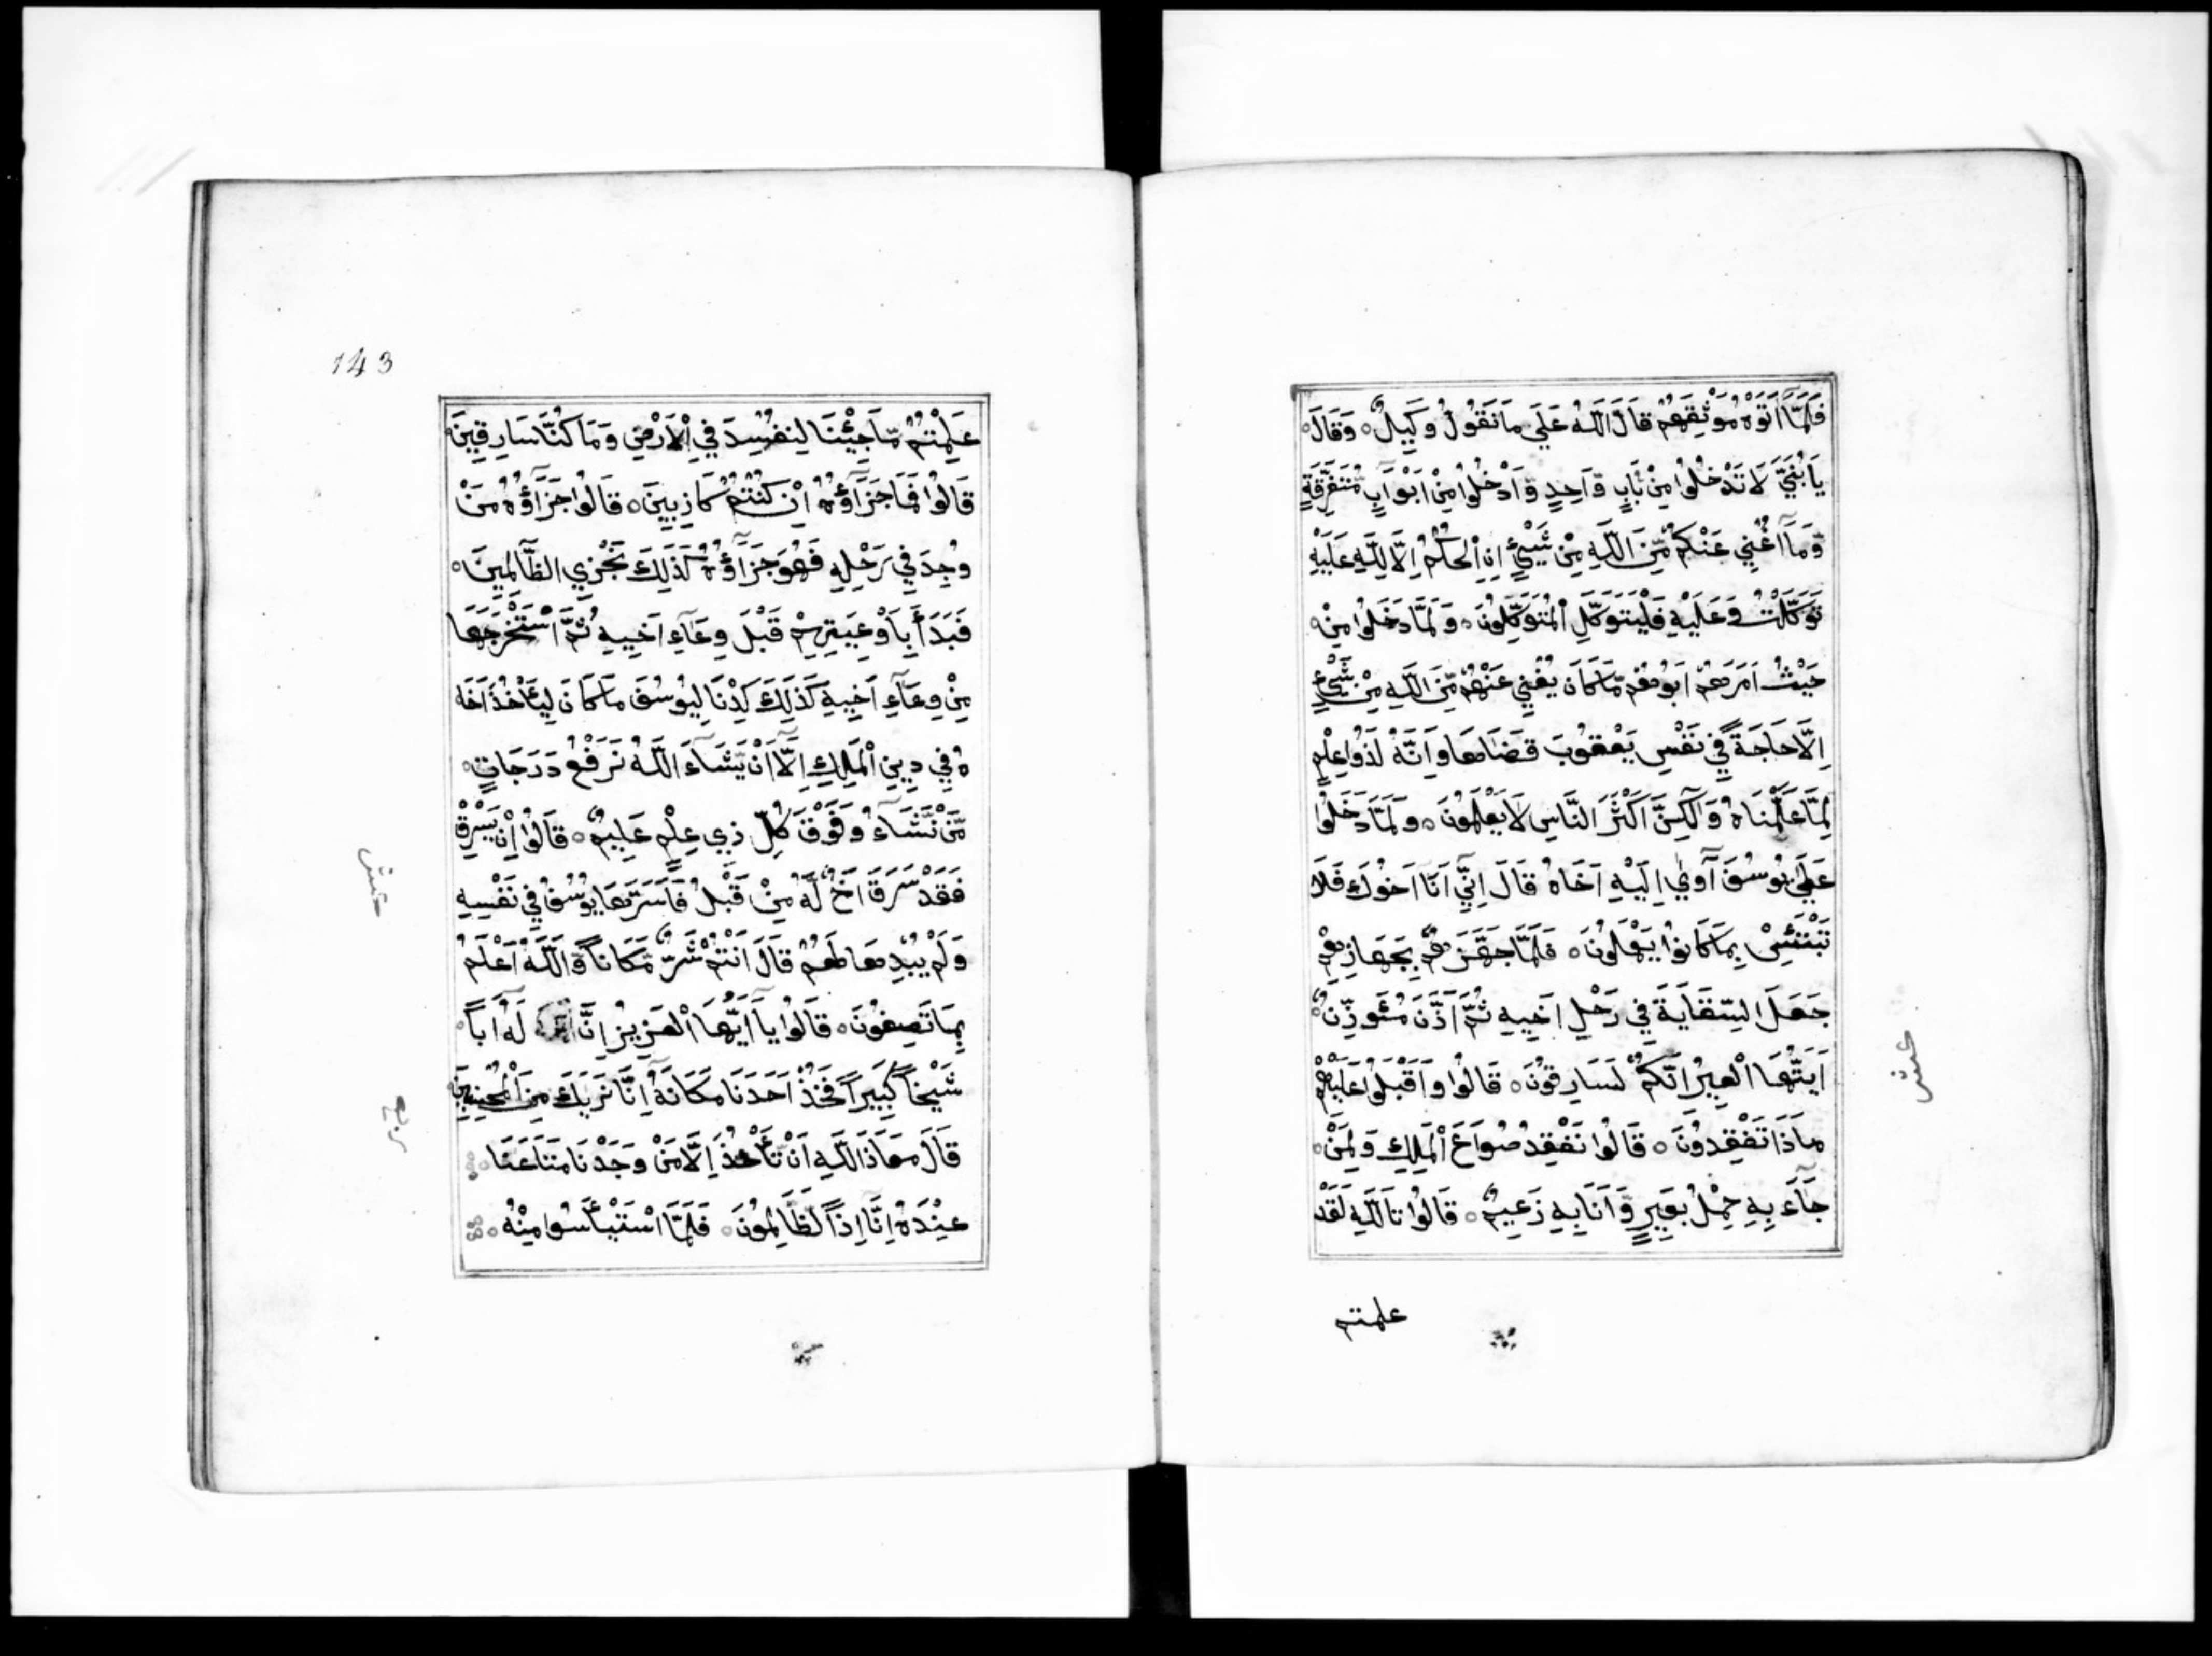 فَلَمَّآ اَتَوْهُ مَوْثِقَهُمْ قَالَ اللّٰهُ عَلَي مَا نَقُولُ وَكِيلٌ ۝ وَقَالَ
يَابُنَيَّ لَا تَدْخُلُوا مِنْ بَابٍ وَّاحِدٍ وَّادْخُلُوا مِنْ اَبْوَابٍ مُّتَفَرِّقَةٍ
وَّمَآ اُغْنِي عَنْكُمْ مِّنَ اللّٰهِ مِنْ شَيْئٍ اِنِ الْحُكْمُ اِلَّا لِلّٰهِ عَلَيْهِ
تَوَكَّلْتُ وَعَلَيْهِ فَلْيَتَوَكَّلِ الْمُتَوَكِّلُونَ ۝ وَلَمَّا دَخَلُوا مِنْ
حَيْثُ اَمَرَهُمْ اَبُوهُمْ مَّا كَانَ يُغْنِي عَنْهُمْ مِّنَ اللّٰهِ مِنْ شَيْءٍ
اِلَّا حَاجَةً فِي نَفْسِ يَعْقُوبَ قَضَاهَا وَاِنَّهُ لَذُوا عِلْمٍ
لِمَّا عَلَّمْنَاهُ وَلَٓكِنَّ اَكْثَرَ النَّاسِ لَا يَعْلَمُونَ ۝ وَلَمَّا دَخَلُوا
عَلَي يُوسُفَ آوٰي اِلَيْهِ اَخَاهُ قَالَ اِنِّيٓ اَنَا اَخُوكَ فَلَا
تَبْتَئِسْ بِمَا كَانُوا يَعْمَلُونَ ۝ فَلَمَّا جَهَّزَهُمْ بِجَهَازِهِمْ
جَعَلَ السِّقَايَةَ فِي رَحْلِ اَخِيهِ ثُمَّ اَذَّنَ مُئَوذِّنٌ
اَيَّتُهَا الْعِيرُ اِنَّكُمْ لَسَارِقُونَ ۝ قَالُوا وَاَقْبَلُوا عَلَيْهِمْ
مَاذَا تَفْقِدُونَ ۝ قَالُوا نَفْقِدُ صُوَاعَ الْمَلِكِ وَلِمَنْ
جَآءَ بِهِ حِمْلُ بَعِيرٍ وَّاَنَا بِهِ زَعِيمٌ ۝ قَالُوا تَاللّٰهِ لَقَدْ
علمتم
عشر
143
عَلِمْتُمْ مَّا جِئْنَا لِنُفْسِدَ فِي الْاَرْضِ وَمَا كُنَّا سَارِقِينَ
قَالُوا فَمَا جَزَآؤُهُ اِنْ كُنْتُمْ كَاذِبِينَ ۝ قَالُوا جَزَآؤُهُ مَنْ
وُجِدَ فِي رَحْلِهِ فَهُوَ جَزَآؤُهُ كَذَلِكَ نَجْزِي الظَّالِمِينَ ۝
فَبَدَأَ بِاَوْعِيَتِهِمْ قَبْلَ وِعَآءِ اَخِيهِ ثُمَّ اسْتَخْرَجَهَا
مِنْ وِعَآءِ اَخِيهِ كَذَلِكَ كِدْنَا لِيُوسُفَ مَا كَانَ لِيَأْخُذَ اَخَا
هُ فِي دِينِ الْمَلِكِ اِلَّآ اَنْ يَّشَآءَ اللّٰهُ نَرْفَعُ دَرَجَاتٍ ۝
مَّنْ نَّشَآءُ وَفَوْقَ كُلِّ ذِي عِلْمٍ عَلِيمٌ ۝ قَالُوا اِنْ يَسْرِقْ
فَقَدْ سَرَقَ اَخٌ لَّهُ مِنْ قَبْلُ فَاَسَرَّهَا يُوسُفُ فِي نَفْسِهِ
وَلَمْ يُبْدِهَا لَهُمْ قَالَ اَنْتُمْ شَرٌّ مَّكَاناً وَّاللّٰهُ اَعْلَمُ
بِمَا تَصِفُونَ ۝ قَالُوا يَآ اَيُّهَا الْعَزِيزُ اِنَّ لَهُ اَباً
شَيْخاً كَبِيراً فَخُذْ اَحَدَنَا مَكَانَهُ اِنَّا نَرَيكَ مِنَ الْمُحْسِنِينَ
قَالَ مَعَاذَ اللّٰهِ اَنْ نَّأْخُذَ اِلَّا مَنْ وَجَدْنَا مَتَاعَنَا ۝
عِنْدَهُ اِنَّا اِذاً لَّظَالِمُونَ ۝ فَلَمَّا اسْتَيْأَسُوا مِنْهُ ۝
عشر
ربع